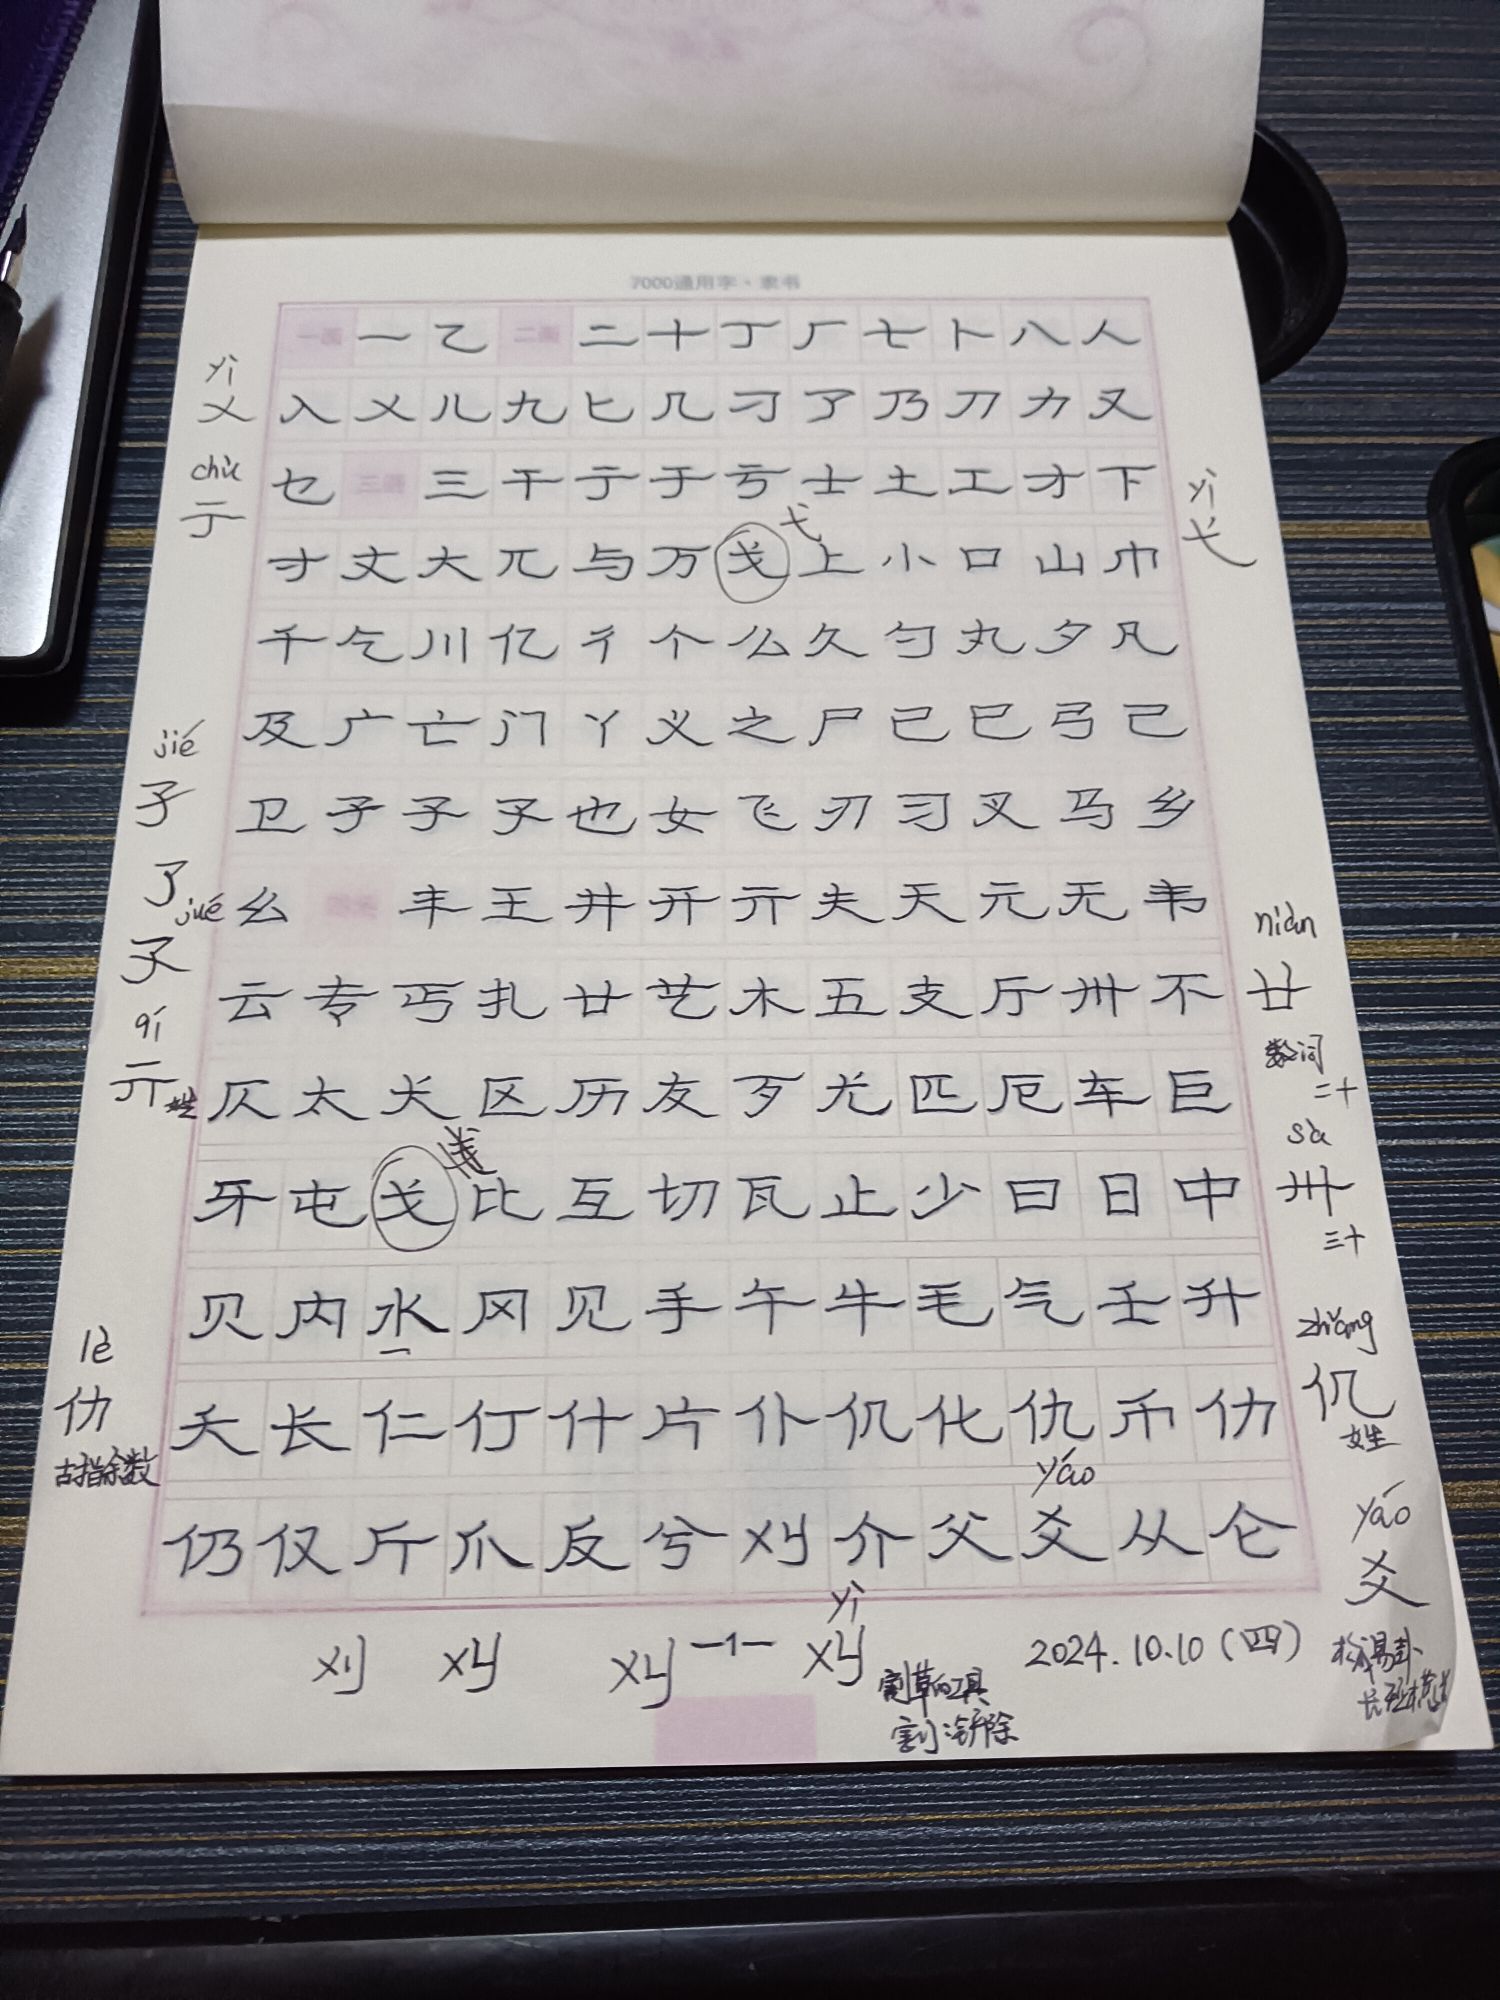 7000通用字·隶书
一画 一 乙 二画 二 十 丁 厂 七 卜 八 人
yì
乂 入 乂 儿 九 匕 几 刁 了 乃 刀 力 又
chù
亍 乜 三画 三 干 亍 于 亏 士 土 工 才 下
弋
寸 丈 大 兀 与 万 戈 上 小 口 山 巾
yì
弋
千 乞 川 亿 彳 个 么 久 勺 丸 夕 凡
及 广 亡 门 丫 义 之 尸 已 巳 弓 己
jié
孑 卫 孑 子 孓 也 女 飞 刃 习 叉 马 乡
了 jué
孓
幺 丰 王 井 开 亓 夫 天 元 无 韦
niàn
云 专 丐 扎 廿 艺 木 五 支 厅 卅 不 廿
数词
二十
qí
亓 姓
仄 太 犬 区 历 友 歹 尤 匹 厄 车 巨
sà
牙 屯 戈 比 互 切 瓦 止 少 曰 日 中 卅
三十
贝 内 水 冈 见 手 午 牛 毛 气 壬 升
lè zhǎng
仂 夭 长 仁 仃 什 片 仆 仉 化 仇 币 仂 仉
古指余数 姓
yáo yáo
仍 仅 斤 爪 反 兮 刈 介 父 爻 从 仑 爻
yì
刈 刈 刈 —1— 刈 2024.10.10(四)
割草的工具
割;铲除